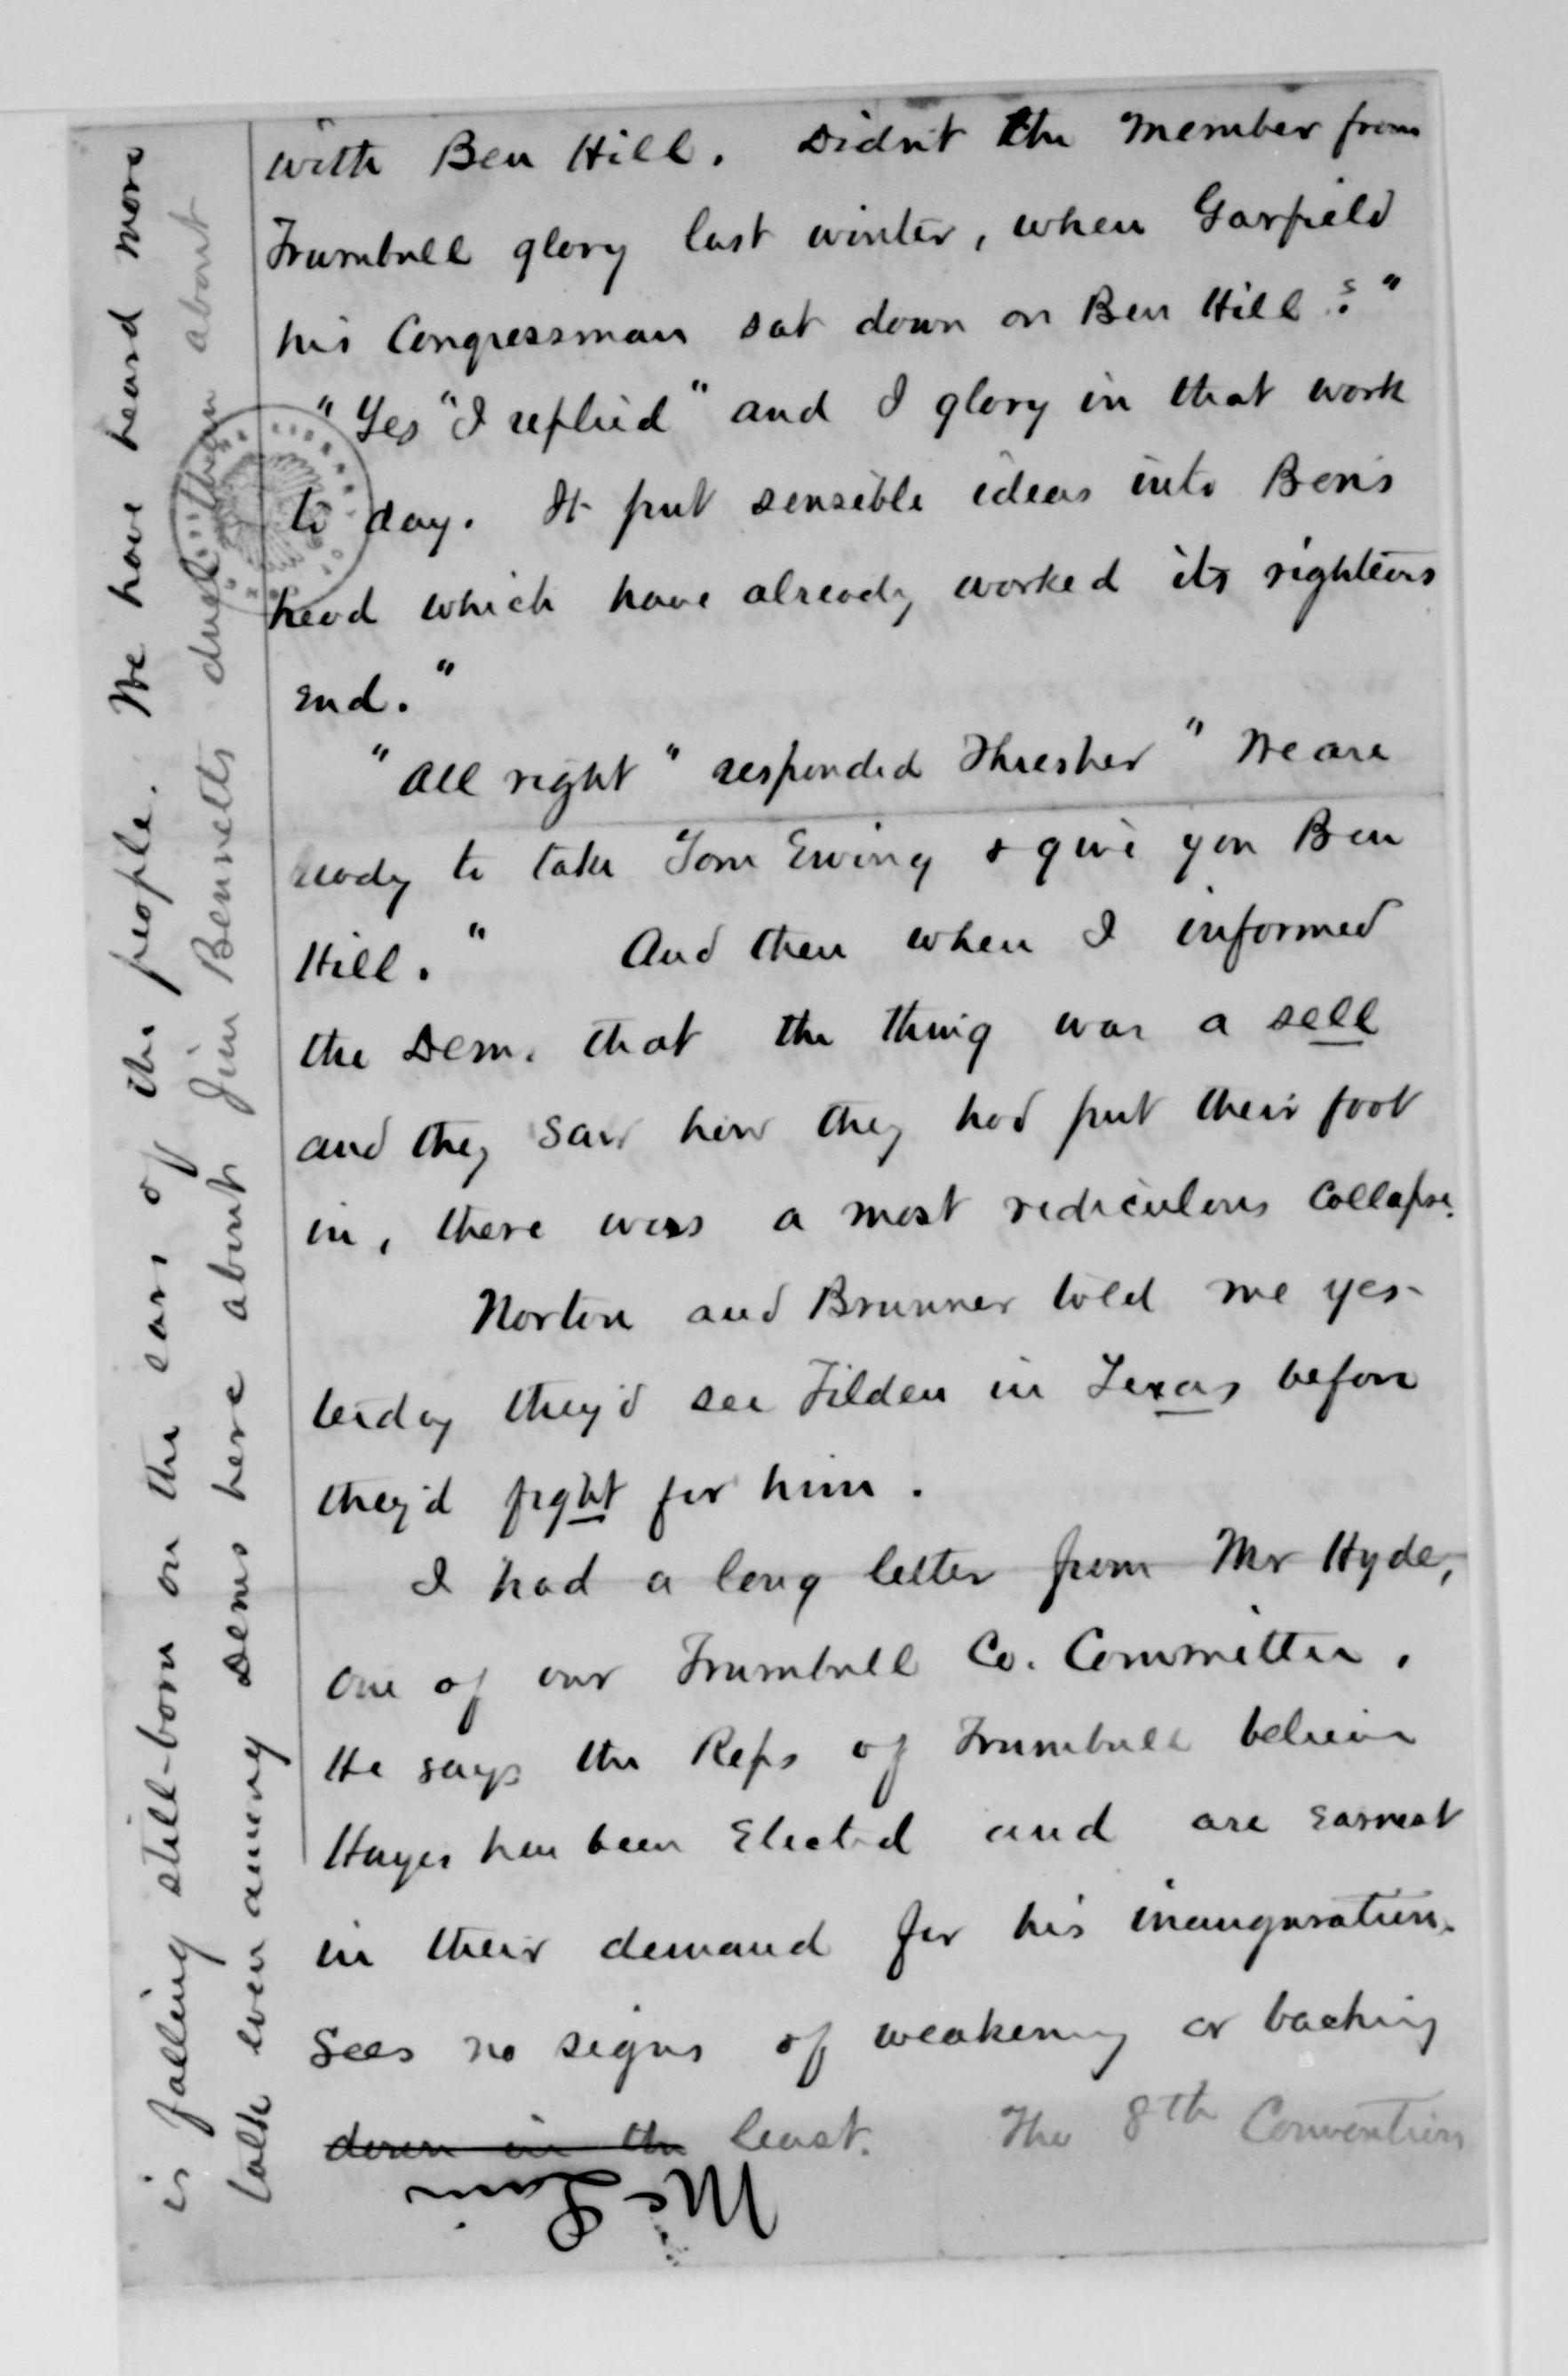 with Ben Hill. Didn't the Member from
Trumbull glory last winter, when Garfield
his Congressman sat down on Ben Hill?"
"Yes" I replied "and I glory in that work
to day. It put sensible ideas into Ben's
head which have already worked its righteous
end."
"All right" responded Thresher "We are
ready to take Tom Ewing & give you Ben
Hill." And then when I informed
the Dem. that the thing was a sell
and they saw how they had put their foot
in, there was a most rediculous collapse.
Norton and Brunner told me yes-
terday they'd see Tilden in Texas before
they'd fight for him.
I had a long letter from Mr Hyde,
one of our Trumbull Co. Committee.
He says the Reps of Trumbull believe
Hayes has been Elected and are earnest
in their demand for his inauguration.
Sees no signs of weakening or backing
down in the least. The 8th Convention
is falling still-born on the ears of the people. We have heard more
talk even among Dems here about Jim Bennetts duel than about